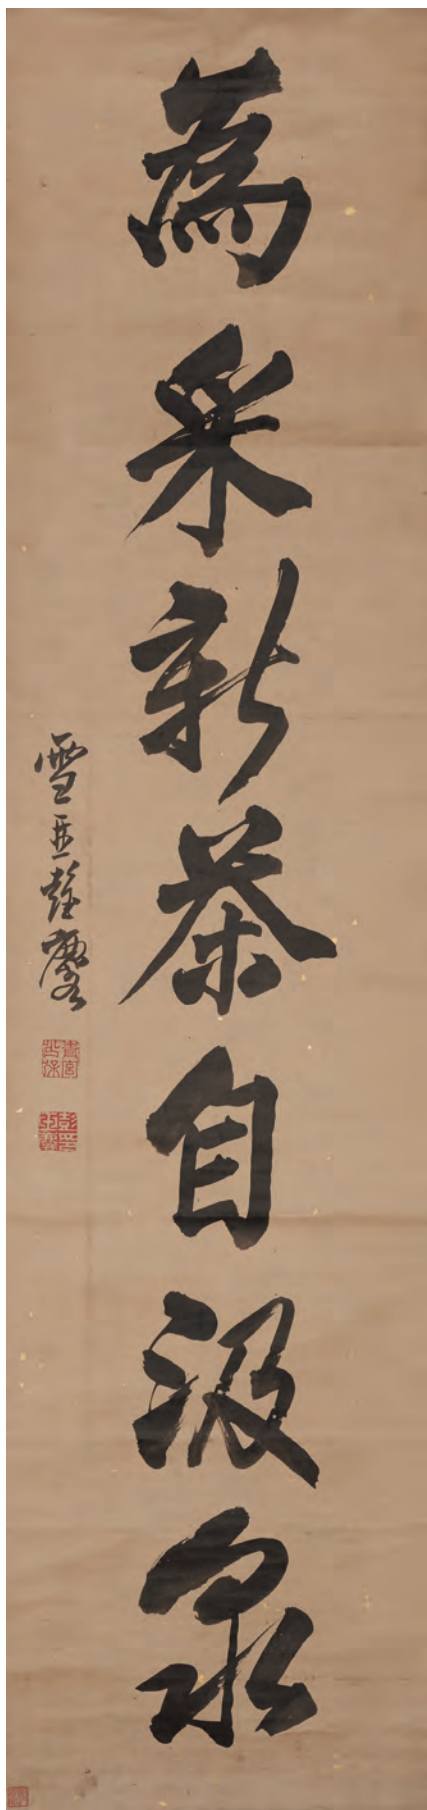 為采新茶自汲泉
雪琴彭玉麐